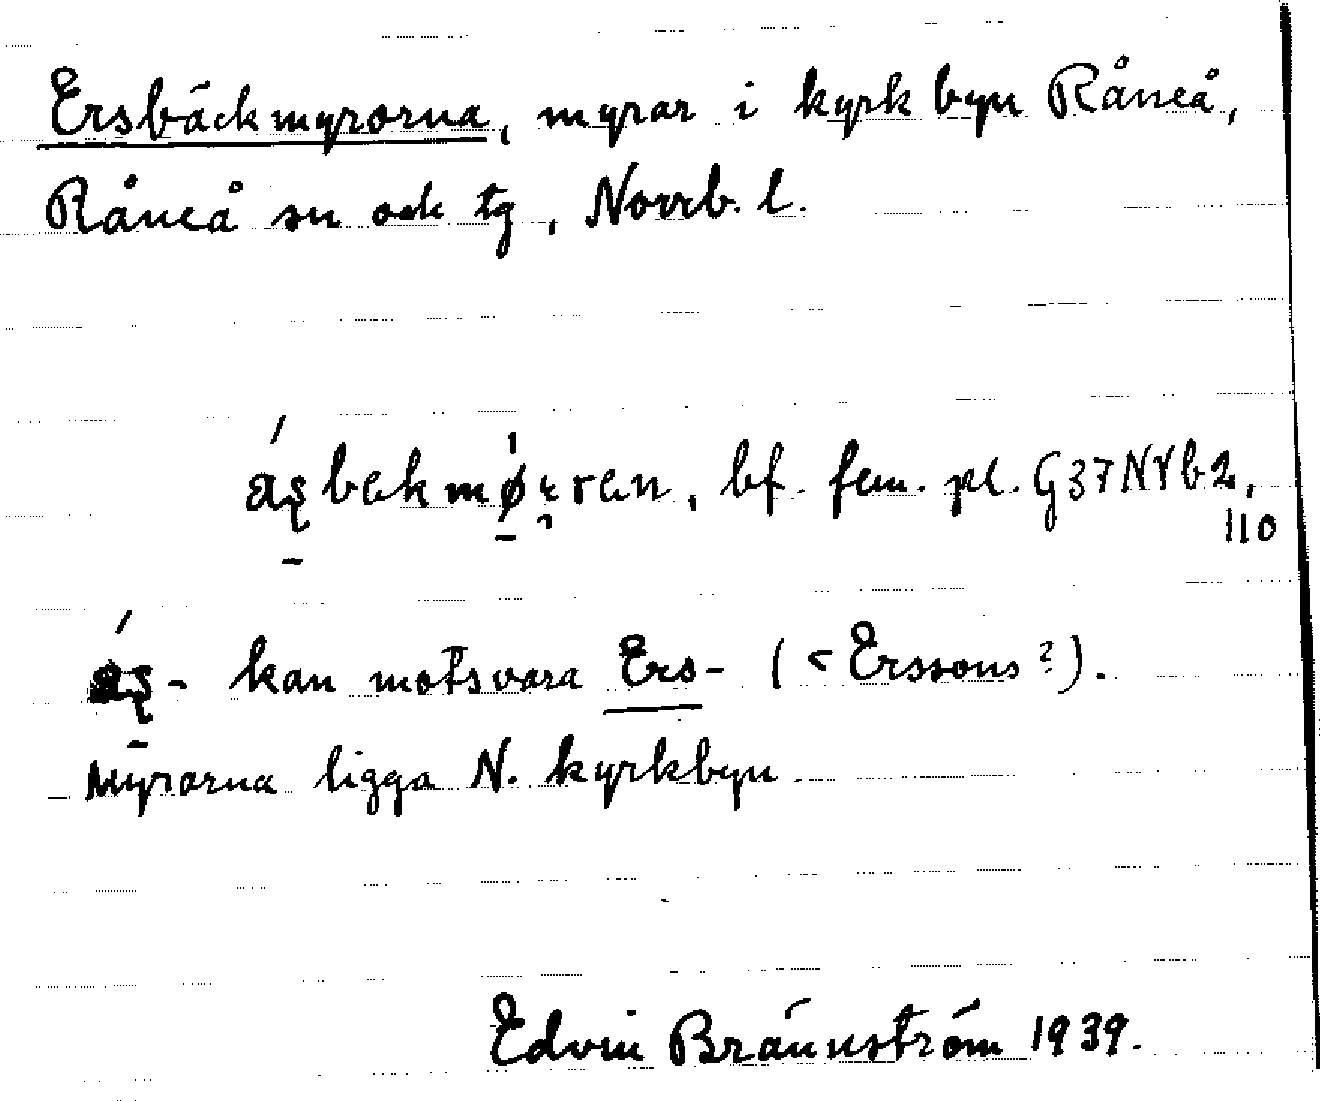 Ersbäckmyrorna, myrar i kyrkbyn Råneå,
Råneå sn och tg, Norrb. l.
a̠ʂbekmøʏren, bf. fem. pl. G37NYb2,
110
áʂ- kan motsvara Ers- (< Erssons?).
Myrorna ligga N. kyrkbyn
Edvin Brännström 1939.